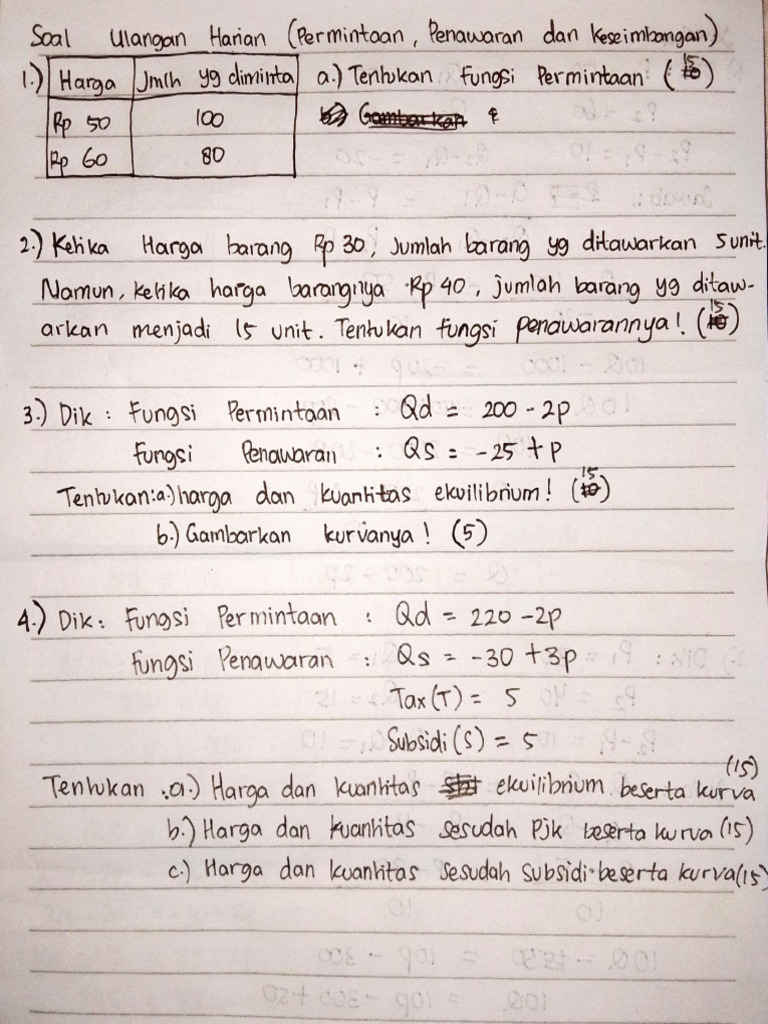 Soal Ulangan Harian (Permintaan, Penawaran dan Keseimbangan)
1.) Harga Jmlh yg diminta a.) Tentukan Fungsi Permintaan (15)
Rp 50 100
Rp 60 80
2.) Ketika Harga barang Rp 30, Jumlah barang yg ditawarkan 5 unit.
Namun, ketika harga barangnya Rp 40, jumlah barang yg ditaw-
arkan menjadi 15 unit. Tentukan fungsi penawarannya! (15)
3.) Dik : Fungsi Permintaan : Qd = 200 - 2p
Fungsi Penawaran : Qs = -25 + p
Tentukan: a.) harga dan kuantitas ekuilibrium! (15)
b.) Gambarkan kurvanya! (5)
4.) Dik: Fungsi Permintaan : Qd = 220 - 2p
Fungsi Penawaran : Qs = -30 + 3p
Tax (T) = 5
Subsidi (S) = 5
Tentukan : a.) Harga dan kuantitas ekuilibrium beserta kurva (15)
b.) Harga dan kuantitas sesudah Pjk beserta kurva (15)
c.) Harga dan kuantitas sesudah subsidi beserta kurva (15)